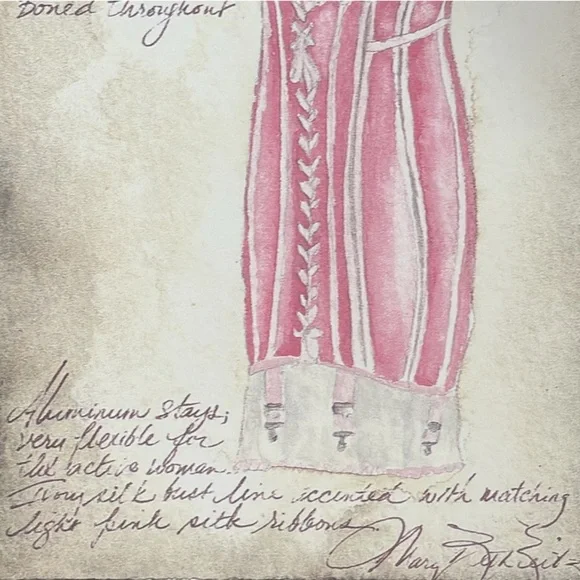 Boned throughout
Aluminum stays;
very flexible for
the active woman.
Ivory silk bust line accented with matching
light pink silk ribbons
Mary Beth